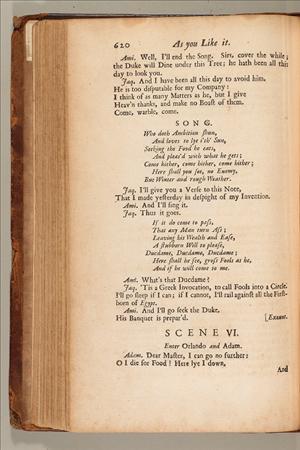 620 As you Like it.
Ami. Well, I'll end the Song. Sirs, cover the while;
the Duke will Dine under this Tree; he hath been all this
day to look you.
Jaq. And I have been all this day to avoid him.
He is too disputable for my Company:
I think of as many Matters as he, but I give
Heav'n thanks, and make no Boast of them.
Come, warble, come.
SONG.
Who doth Ambition shun,
And loves to lye i'th' Sun,
Seeking the Food he eats,
And pleas'd with what he gets;
Come hither, come hither, come hither;
Here shall you see, no Enemy,
But Winter and rough Weather.
Jaq. I'll give you a Verse to this Note,
That I made yesterday in despight of my Invention.
Ami. And I'll sing it.
Jaq. Thus it goes.
If it do come to pass,
That any Man turn Ass;
Leaving his Wealth and Ease,
A stubborn Will to please,
Ducdame, Ducdame, Ducdame;
Here shall he see, gross Fools as he,
And if he will come to me.
Ami. What's that Ducdame?
Jaq. 'Tis a Greek Invocation, to call Fools into a Circle.
I'll go sleep if I can; if I cannot, I'll rail against all the First-
born of Egypt.
Ami. And I'll go seek the Duke,
His Banquet is prepar'd. [Exeunt.
SCENE VI.
Enter Orlando and Adam.
Adam. Dear Master, I can go no further:
O I die for Food! Here lye I down,
And